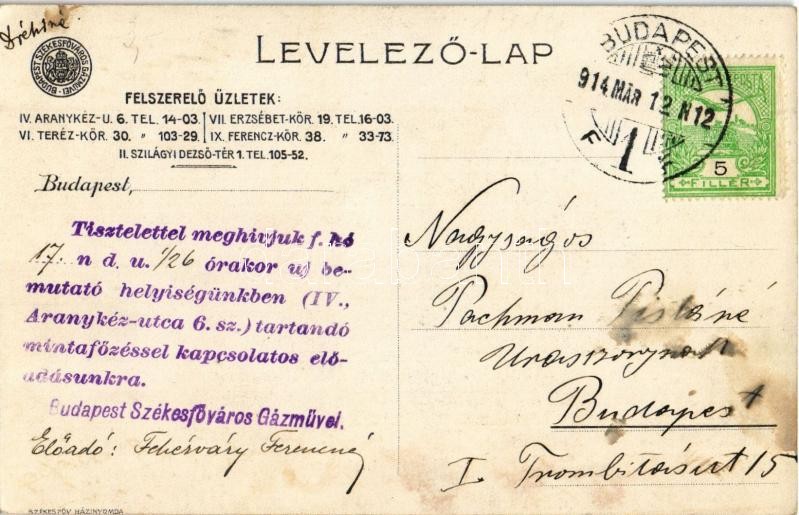 LEVELEZŐ-LAP
BUDAPEST SZÉKESFŐVÁROS GÁZMŰVEI
FELSZERELŐ ÜZLETEK:
IV. ARANYKÉZ-U. 6. TEL. 14-03. VII. ERZSÉBET-KÖR. 19. TEL. 16-03.
VI. TERÉZ-KÖR. 30. " 103-29. IX. FERENCZ-KÖR. 38. " 33-73.
II. SZILÁGYI DEZSŐ-TÉR 1. TEL. 105-52.
Budapest,
Tisztelettel meghivjuk f. hó
17. n d. u. 1/26 órakor uj be-
mutató helyiségünkben (IV.,
Aranykéz-utca 6. sz.) tartandó
mintafőzéssel kapcsolatos elő-
adásunkra.
Budapest Székesfőváros Gázművei.
Előadó: Fehérváry Ferencné
SZÉKESFŐV. HÁZINYOMDA
BUDAPEST
914 MAR 12 N 12
1
F
5
FILLÉR
Nagyságos
Pachman
Budapest
I. Trombitásut 15